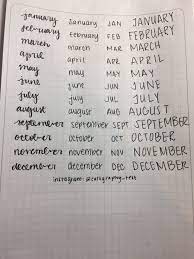 january january JAN JANUARY
february february FEB FEBRUARY
march march MAR MARCH
april april APR APRIL
may may MAY MAY
june june JUN JUNE
july july JUL JULY
august august AUG AUGUST
september september SEPT SEPTEMBER
october october OCT OCTOBER
november november NOV NOVEMBER
december december DEC DECEMBER
instagram: